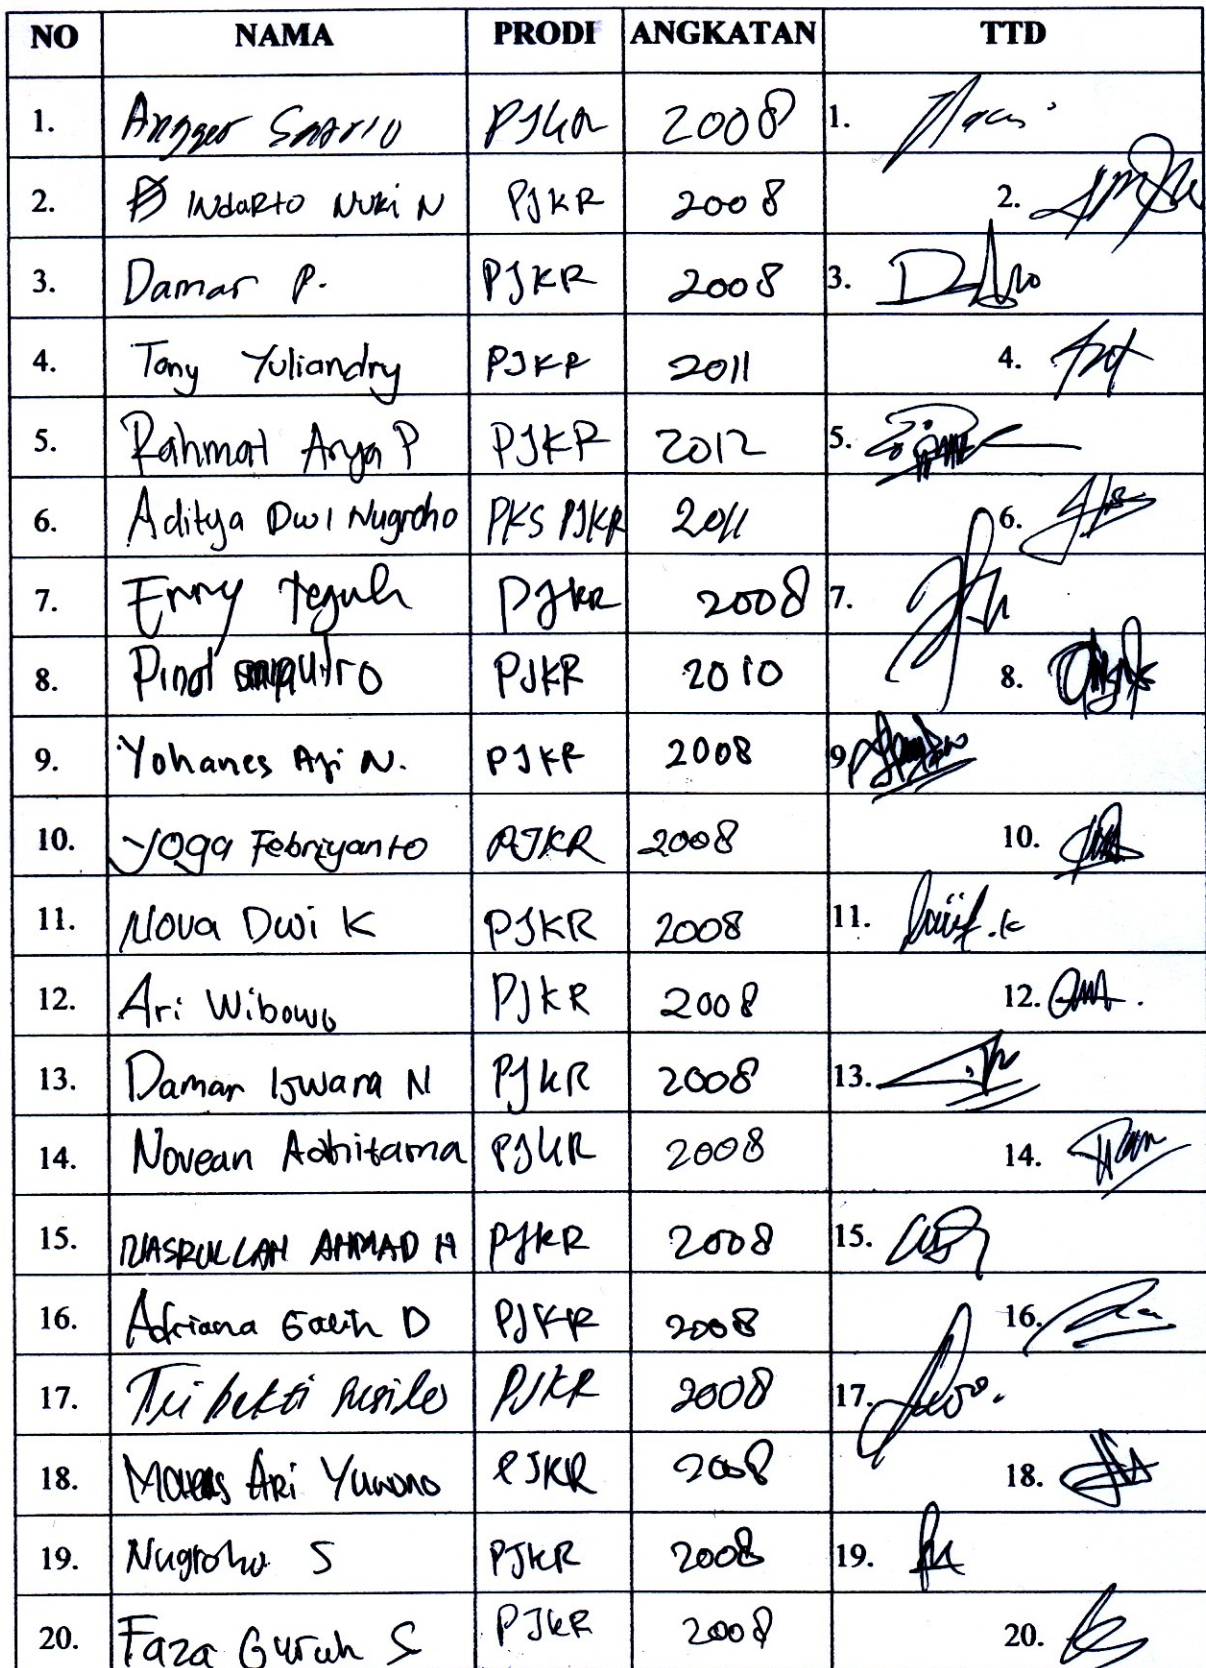 NO NAMA PRODI ANGKATAN TTD
1. Angger PJKR 2008 1.
2. Indarto Nuki N PJKR 2008 2.
3. Damar P. PJKR 2008 3.
4. Tony Yuliandry PJKR 2011 4.
5. Rahmat Arya P PJKR 2012 5.
6. Aditya Dwi Nugroho PKS PJKR 2011 6.
7. Enny Teguh PJKR 2008 7.
8. 2010 PJKR 8.
9. Yohanes Aji N. PJKR 2008 9.
10. Yoga Febriyanto PJKR 2008 10.
11. Nova Dwi K PJKR 2008 11.
12. Ari Wibowo PJKR 2008 12.
13. Damar Iswara N PJKR 2008 13.
14. Novean Adhitama PJKR 2008 14.
15. NASRULLAH AHMAD H PJKR 2008 15.
16. Adriana Galih D PJKR 2008 16.
17. Tri bekti susilo PJKR 2008 17.
18. Ari Yuwono PJKR 2008 18.
19. Nugroho S PJKR 2008 19.
20. Faza Guruh S PJKR 2008 20.